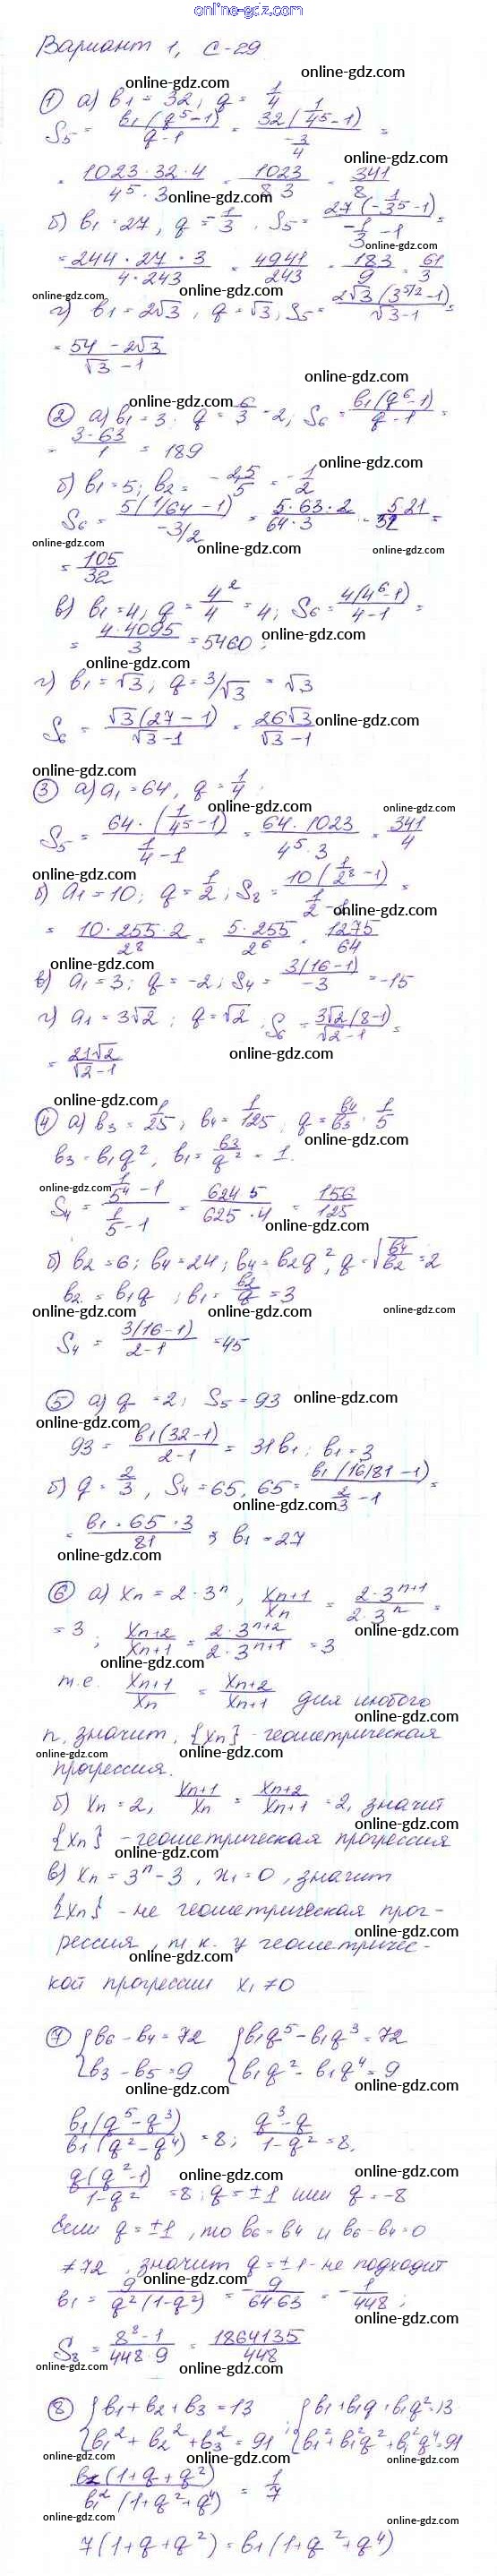 online-gdz.com
Вариант 1, С-29
online-gdz.com
① а) b₁ = 32, q = 1/4
online-gdz.com
S₅ = b₁(q⁵-1)/(q-1) = 32(1/4⁵-1)/(-3/4) =
online-gdz.com
= 1023·32·4/(4⁵·3) = 1023/(8·3) = 341/8
online-gdz.com
б) b₁ = 27, q = -1/3, S₅ = 27(-1/3⁵-1)/(-1/3-1) =
online-gdz.com
= 244·27·3/(4·243) = 4941/243 = 183/9 = 61/3
online-gdz.com online-gdz.com
г) b₁ = 2√3, q = √3, S₅ = 2√3(3^(5/2)-1)/(√3-1) =
= (54-2√3)/(√3-1)
online-gdz.com
② а) b₁ = 3; q = 6/3 = 2; S₆ = b₁(q⁶-1)/(q-1) =
= 3·63/1 = 189
online-gdz.com
б) b₁ = 5; b₂ = -2,5/5 = -1/2
S₆ = 5(1/64-1)/(-3/2) = 5·63·2/(64·3) = 5·21/32 =
online-gdz.com online-gdz.com online-gdz.com
= 105/32
в) b₁ = 4; q = 4²/4 = 4; S₆ = 4(4⁶-1)/(4-1) =
= 4·4095/3 = 5460;
online-gdz.com
online-gdz.com
г) b₁ = √3; q = 3/√3 = √3
S₆ = √3(27-1)/(√3-1) = 26√3/(√3-1)
online-gdz.com
online-gdz.com
③ а) a₁ = 64, q = 1/4;
online-gdz.com
S₅ = 64·(1/4⁵-1)/(1/4-1) = 64·1023/(4⁵·3) = 341/4
online-gdz.com
б) a₁ = 10; q = 1/2; S₈ = 10(1/2⁸-1)/(1/2-1) =
online-gdz.com
= 10·255·2/2⁸ = 5·255/2⁶ = 1275/64
online-gdz.com
в) a₁ = 3; q = -2; S₄ = 3(16-1)/(-3) = -15
г) a₁ = 3√2; q = √2, S₆ = 3√2(8-1)/(√2-1) =
= 21√2/(√2-1)
online-gdz.com
④ а) b₃ = 1/25; b₄ = 1/125, q = b₄/b₃ = 1/5
online-gdz.com
b₃ = b₁q², b₁ = b₃/q² = 1.
online-gdz.com online-gdz.com
S₄ = (1/5⁴-1)/(1/5-1) = 624·5/(625·4) = 156/125
б) b₂ = 6; b₄ = 24; b₄ = b₂q², q = √(b₄/b₂) = 2
b₂ = b₁q; b₁ = b₂/q = 3
online-gdz.com online-gdz.com online-gdz.com
S₄ = 3(16-1)/(2-1) = 45
⑤ а) q = 2; S₅ = 93
online-gdz.com
online-gdz.com
93 = b₁(32-1)/(2-1) = 31b₁; b₁ = 3
б) q = 2/3, S₄ = 65, 65 = b₁(16/81-1)/(2/3-1) =
online-gdz.com
= b₁·65·3/81 ⇒ b₁ = 27
online-gdz.com
⑥ а) xₙ = 2·3ⁿ, xₙ₊₁/xₙ = 2·3ⁿ⁺¹/(2·3ⁿ) =
online-gdz.com
= 3; xₙ₊₂/xₙ₊₁ = 2·3ⁿ⁺²/(2·3ⁿ⁺¹) = 3
online-gdz.com
т.е. xₙ₊₁/xₙ = xₙ₊₂/xₙ₊₁ для любого
online-gdz.com
n, значит, {xₙ} - геометрическая
online-gdz.com online-gdz.com
прогрессия.
б) xₙ = 2, xₙ₊₁/xₙ = xₙ₊₂/xₙ₊₁ = 2, значит
online-gdz.com
{xₙ} - геометрическая прогрессия
в) xₙ = 3ⁿ-3, x₁ = 0, значит
{xₙ} - не геометрическая прог-
online-gdz.com
рессия, т к. у геометричес-
кой прогрессии x₁ ≠ 0
⑦ {b₆-b₄ = 72 {b₁q⁵-b₁q³ = 72
{b₃-b₅ = 9 {b₁q²-b₁q⁴ = 9
online-gdz.com online-gdz.com
b₁(q⁵-q³)/(b₁(q²-q⁴)) = 8; (q³-q)/(1-q²) = 8.
online-gdz.com online-gdz.com
q(q²-1)/(1-q²) = 8; q = ±1 или q = -8
Если q = ±1, то b₆ = b₄ и b₆-b₄ = 0
online-gdz.com
≠ 72, значит q = ±1 - не подходит
online-gdz.com
b₁ = 9/(q²(1-q²)) = -9/(64·63) = -1/448;
online-gdz.com
S₈ = (8⁸-1)/(448·9) = 1864135/448
online-gdz.com online-gdz.com
⑧ {b₁+b₂+b₃ = 13 {b₁+b₁q+b₁q² = 13
{b₁²+b₂²+b₃² = 91; {b₁²+b₁²q²+b₁²q⁴ = 91
online-gdz.com online-gdz.com online-gdz.com
b₁(1+q+q²)/(b₁²(1+q²+q⁴)) = 1/7
online-gdz.com online-gdz.com
7(1+q+q²) = b₁(1+q²+q⁴)